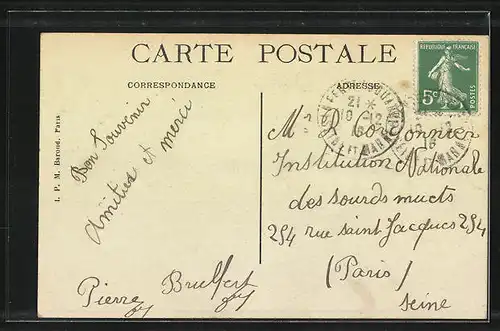 CARTE POSTALE
CORRESPONDANCE
ADRESSE
RÉPUBLIQUE FRANÇAISE
5c
POSTES
21 *
10 12
16
ET MARNE
Bon Souvenir
Amitiés et merci
Pierre Brulfert
I. P. M. Baroud, Paris
Mr
Institution Nationale
des sourds muets
254 rue saint Jacques 254
(Paris)
Seine